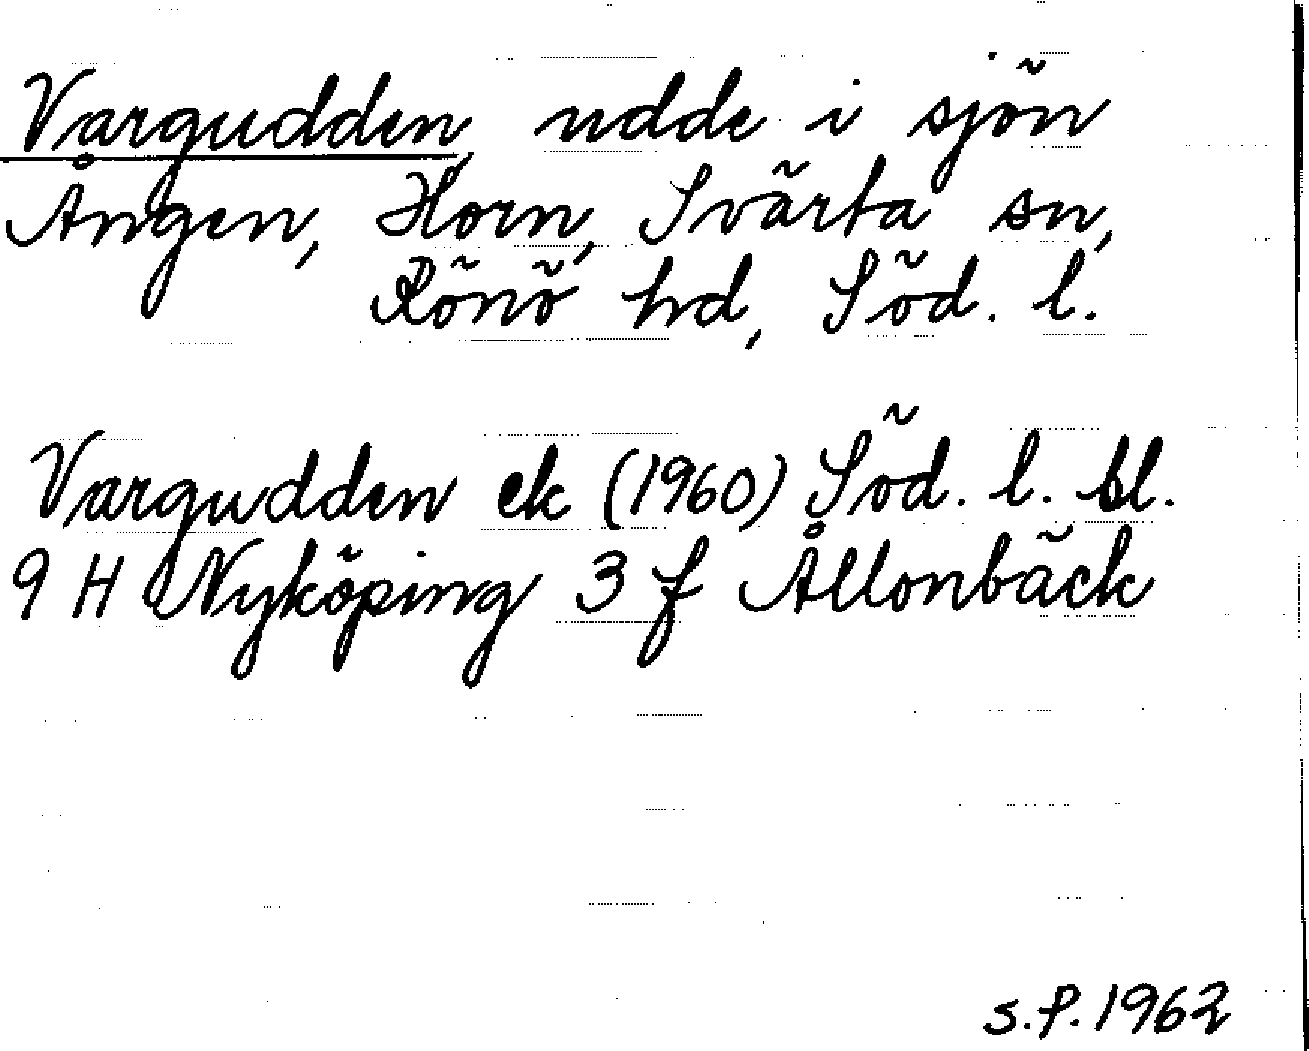 Vargudden, udde i sjön
Ången, Horn, Svärta sn,
Rönö hd, Söd. l.
Vargudden ek (1960) Söd. l. bl.
9 H Nyköping 3 f Ållonbäck
s.f. 1962